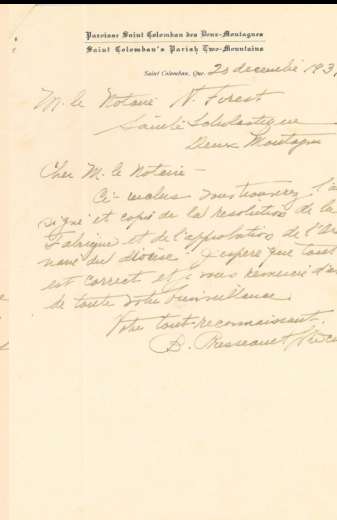 Paroisse Saint Colomban des Deux-Montagnes
Saint Colomban's Parish Two-Mountains
Saint Colomban, Que. 20 decembre 193
M. le Notaire N. Forest
Sainte Scholastique
Deux Montagnes
Cher M. le Notaire -
Ci-inclus vous trouverez l'a
signé et copie de la resolution de la
Fabrique et de l'approbation de l'Or
naire du diocèse. J'espère que tout
est correct et je vous remercie d'a
de toute votre bienveillance
Votre tout reconnaissant,
B. Presseault, ptre